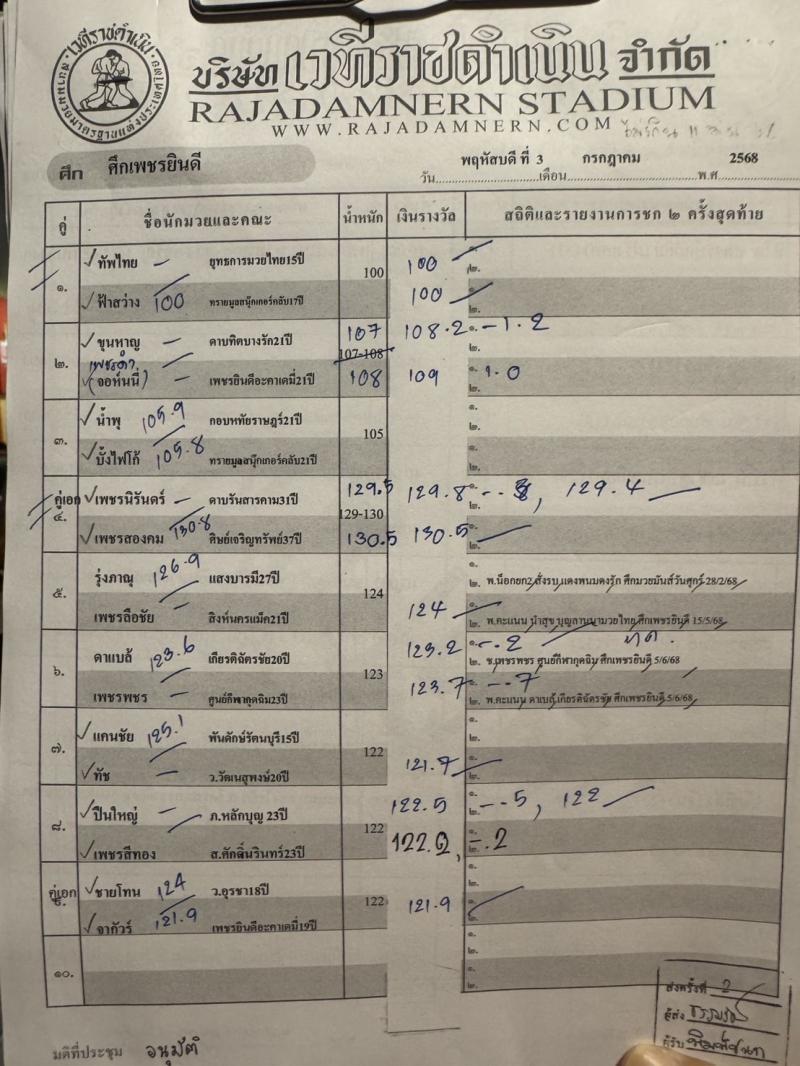 เวทีราชดำเนิน
บริษัท เวทีราชดำเนิน จำกัด
RAJADAMNERN STADIUM
WWW.RAJADAMNERN.COM
ศึก ศึกเพชรยินดี
พฤหัสบดี ที่ 3 กรกฎาคม 2568
วัน เดือน พ.ศ
คู่ ชื่อนักมวยและคณะ น้ำหนัก เงินรางวัล สถิติและรายงานการชก ๒ ครั้งสุดท้าย
๑. ทัพไทย ยุทธการมวยไทย15ปี 100 100 ๑. ๒.
ฟ้าสว่าง 100 ทรายมูลสนุ๊กเกอร์คลับ17ปี 100 ๑. ๒.
๒. ขุนหาญ ดาบทิตบางรัก21ปี 107 108.2 ๑. -1.2 ๒.
107-108
เพชรดำ
(จอห์นนี่) เพชรยินดีอะคาเดมี่21ปี 108 109 ๑. 1.0 ๒.
๓. น้ำพุ 105.9 กอบหทัยราษฎร์21ปี 105 ๑. ๒.
บั้งไฟโก้ 105.8 ทรายมูลสนุ๊กเกอร์คลับ21ปี ๑. ๒.
คู่เอก ๔. เพชรนิรันดร์ ดาบรันสารคาม31ปี 129.5 129.8 ๑. ๒. , 129.4
129-130
เพชรสองคม 130.8 ศิษย์เจริญทรัพย์37ปี 130.5 130.5 ๑. ๒.
๕. รุ่งภาณุ 126.9 แสงบารมี27ปี 124 ๑.
๒. พ.น็อกยก2 สั่งรบ แดงพนมดงรัก ศึกมวยมันส์วันศุกร์ 28/2/68
เพชรลือชัย สิงห์นครแม็ค21ปี 124 ๑.
๒. พ.คะแนน นำสุข บุญลานนามวยไทย ศึกเพชรยินดี 15/5/68
๖. ดาแบล้ 123.6 เกียรติฉัตรชัย20ปี 123 123.2 ๑. -.2
๒. ช.เพชรพชร ศูนย์กีฬากุดฉิม ศึกเพชรยินดี 5/6/68
เพชรพชร ศูนย์กีฬากุดฉิม23ปี 123.7 ๑. -.7
๒. พ.คะแนน ดาแบล้ เกียรติฉัตรชัย ศึกเพชรยินดี 5/6/68
๗. แคนชัย 125.1 พันดักษ์รัตนบุรี15ปี 122 ๑. ๒.
ทัช ว.วัฒนสุพงษ์20ปี 121.7 ๑. ๒.
๘. ปืนใหญ่ ภ.หลักบุญ 23ปี 122 122.5 ๑. -.5, 122 ๒.
เพชรสีทอง ส.ศักดิ์นรินทร์23ปี 122.2, ๑. -.2 ๒.
คู่เอก ๙. ชายโทน 124 ว.อุรชา18ปี 122 ๑. ๒.
จากัวร์ 121.9 เพชรยินดีอะคาเดมี่19ปี 121.9 ๑. ๒.
๑๐. ๑. ๒.
๑. ๒.
ส่งครั้งที่ 2
ผู้ส่ง
ผู้รับ
มติที่ประชุม อนุมัติ